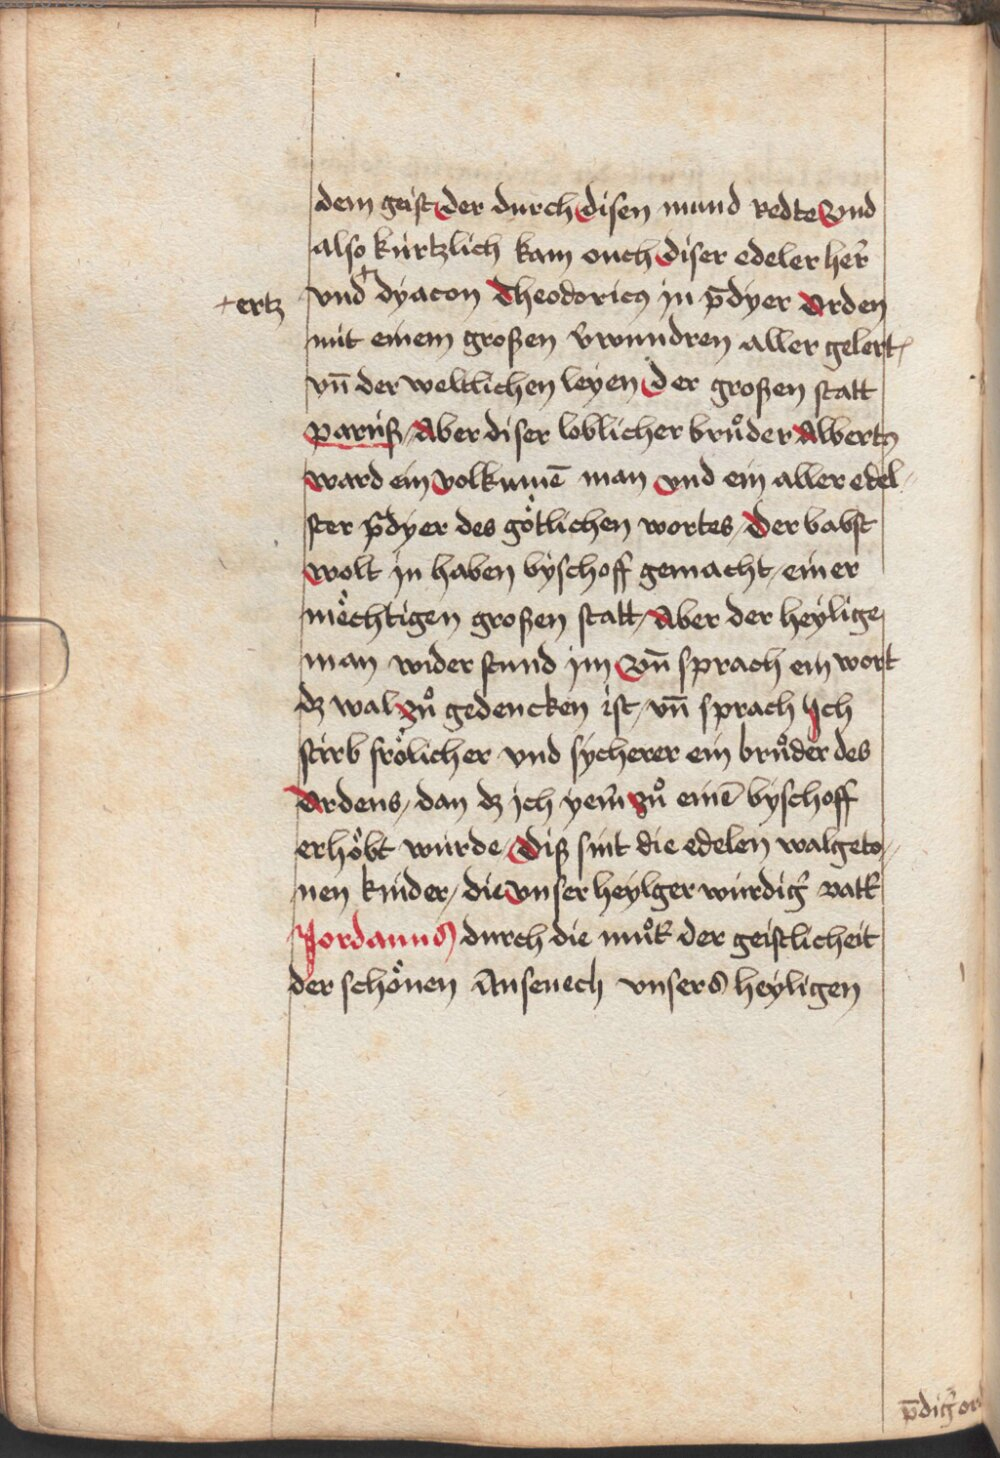 dem geist der durch disen mund redte Vnd
also kurtzlich kam ouch diser edeler her̄
+ertz
vnd + dyacon Theodoricꝯ jn p̄dyer Orden
mit einem großen v̄wundren aller gelert
vn̄ der weltlichen leyen Der großen statt
pariiß / Aber diser loblicher brůder Albertꝯ
ward ein volkumē man vnd ein aller edel-
ster p̄dyer des götlichen wortes / Der babst
wolt jn haben byschoff gemacht / einer
mechtigen großen statt / Aber der heylige
man wider stund jm Vn̄ sprach ein wort
dz wal zů gedencken ist / vn̄ sprach Ich
stirb frölicher vnd sycherer ein brůder des
Ordens / dan dz jch yem̄ zů einē byschoff
erhöbt wurde / Diß sint die edelen walgeto-
nen kinder / die vnser heylger wurdiḡ vatt̄
Jordanus durch die můt̄ der geistlicheit
der schönen Ansenech vnsers heyligen
p̄diḡ ord